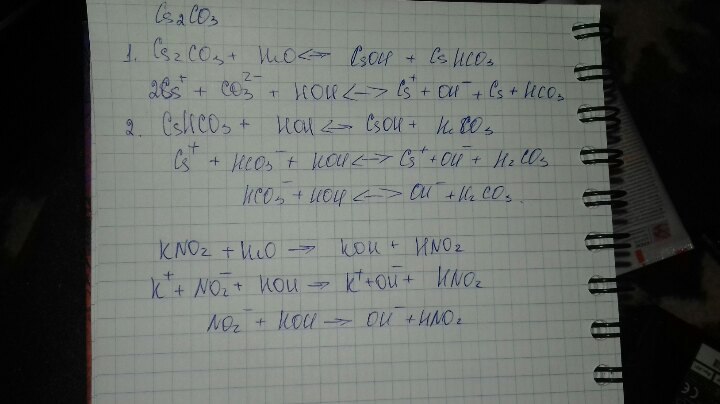 Cs2CO3
1. Cs2CO3 + H2O <=> CsOH + CsHCO3
2Cs⁺ + CO3²⁻ + HOH <-> Cs⁺ + OH⁻ + Cs + HCO3
2. CsHCO3 + HOH <=> CsOH + H2CO3
Cs⁺ + HCO3⁻ + HOH <-> Cs⁺ + OH⁻ + H2CO3
HCO3⁻ + HOH <-> OH⁻ + H2CO3.
KNO2 + H2O → KOH + HNO2
K⁺ + NO2⁻ + HOH → K⁺ + OH⁻ + HNO2
NO2⁻ + HOH → OH⁻ + HNO2